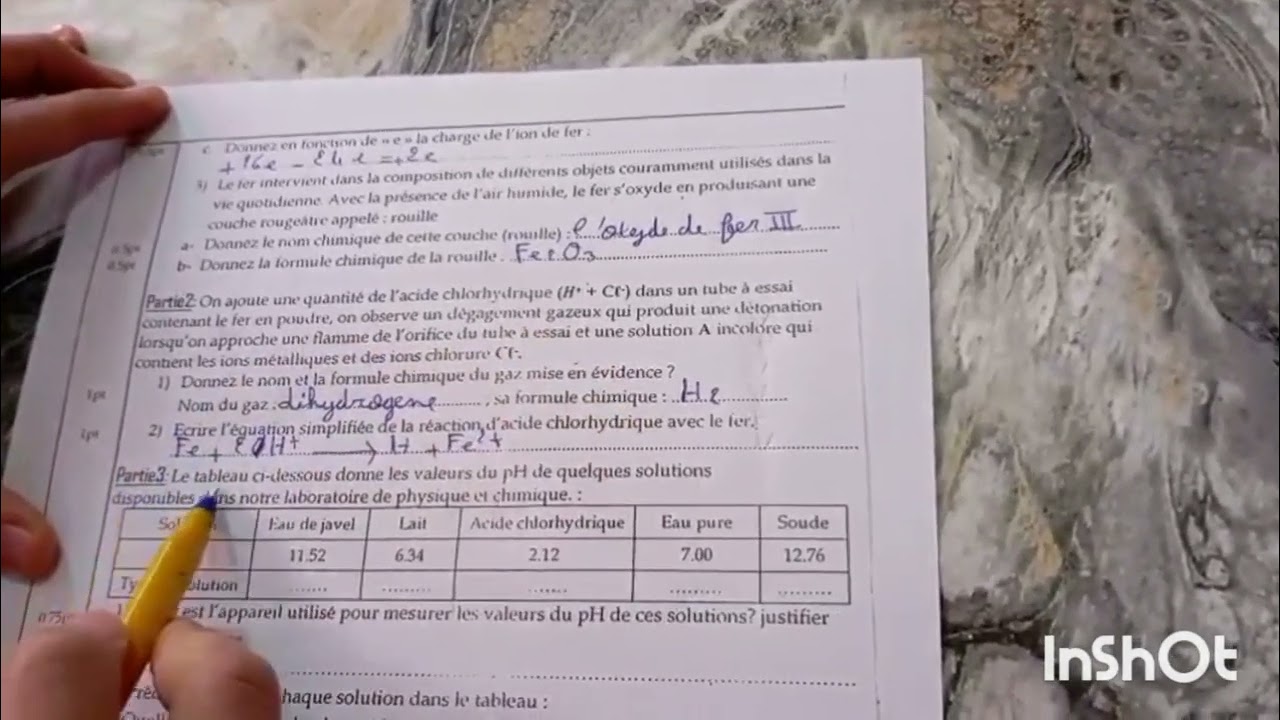 c. Donnez en fonction de « e » la charge de l'ion de fer :
= +2e
3) Le fer intervient dans la composition de différents objets couramment utilisés dans la
vie quotidienne. Avec la présence de l'air humide, le fer s'oxyde en produisant une
couche rougeâtre appelé : rouille
0.5pt a- Donnez le nom chimique de cette couche (rouille) : l'oxyde de fer III
0.5pt b- Donnez la formule chimique de la rouille . Fe2O3
Partie2: On ajoute une quantité de l'acide chlorhydrique (H+ + Cl-) dans un tube à essai
contenant le fer en poudre, on observe un dégagement gazeux qui produit une détonation
lorsqu'on approche une flamme de l'orifice du tube à essai et une solution A incolore qui
contient les ions métalliques et des ions chlorure Cl-.
1) Donnez le nom et la formule chimique du gaz mise en évidence ?
1pt Nom du gaz : dihydrogene , sa formule chimique : H2
2) Ecrire l'équation simplifiée de la réaction d'acide chlorhydrique avec le fer.
1pt Fe + H+ → H + Fe2+
Partie3: Le tableau ci-dessous donne les valeurs du pH de quelques solutions
disponibles notre laboratoire de physique et chimique. :
Eau de javel Lait Acide chlorhydrique Eau pure Soude
11.52 6.34 2.12 7.00 12.76
...... ........ ...... ......... .........
0.75pt est l'appareil utilisé pour mesurer les valeurs du pH de ces solutions? justifier
haque solution dans le tableau :
InShOt